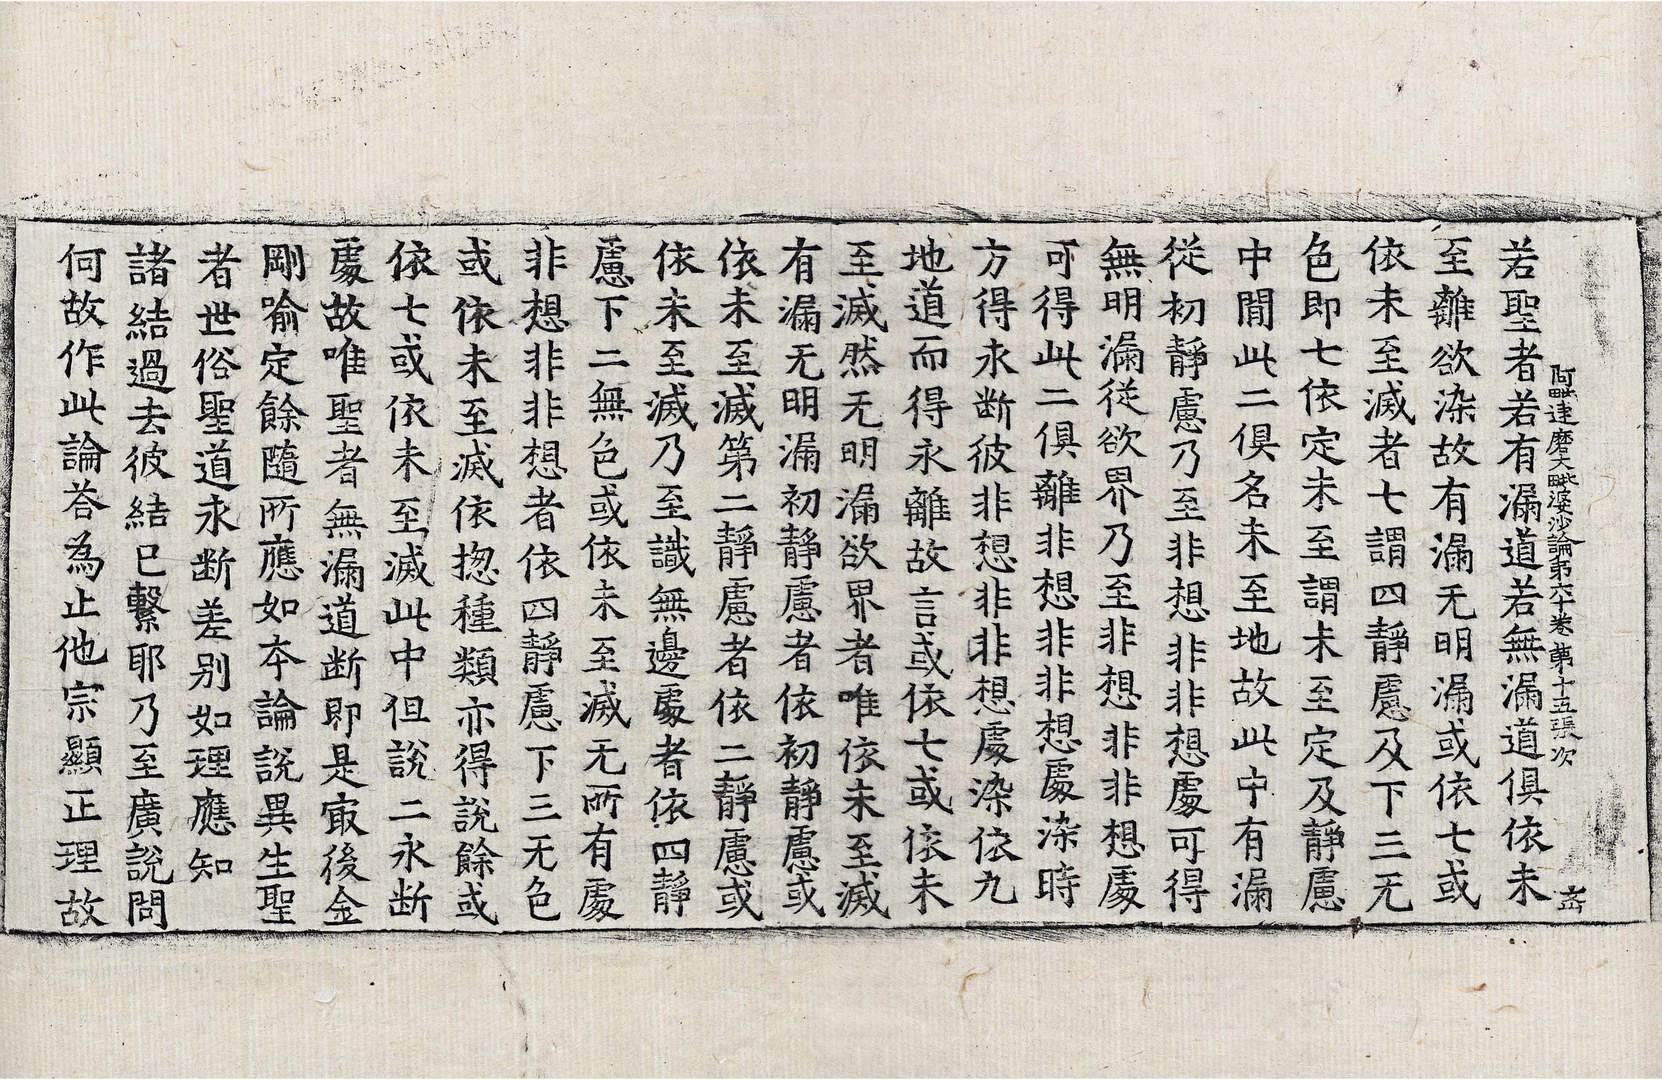 阿毗達磨大毗婆沙論第六十卷 第十五張 次
若聖者若有漏道若無漏道俱依未
至離欲染故有漏无明漏或依七或
依未至滅者七謂四靜慮及下三无
色即七依定未至謂未至定及靜慮
中間此二俱名未至地故此中有漏
從初靜慮乃至非想非非想處可得
無明漏從欲界乃至非想非非想處
可得此二俱離非想非非想處染時
方得永斷彼非想非非想處染依九
地道而得永離故言或依七或依未
至滅然无明漏欲界者唯依未至滅
有漏无明漏初靜慮者依初靜慮或
依未至滅第二靜慮者依二靜慮或
依未至滅乃至識無邊處者依四靜
慮下二無色或依未至滅无所有處
非想非非想者依四靜慮下三无色
或依未至滅依揔種類亦得說餘或
依七或依未至滅此中但說二永斷
處故唯聖者無漏道斷即是㝡後金
剛喻定餘隨所應如本論說異生聖
者世俗聖道永斷差別如理應知
諸結過去彼結已繫耶乃至廣說問
何故作此論荅為止他宗顯正理故